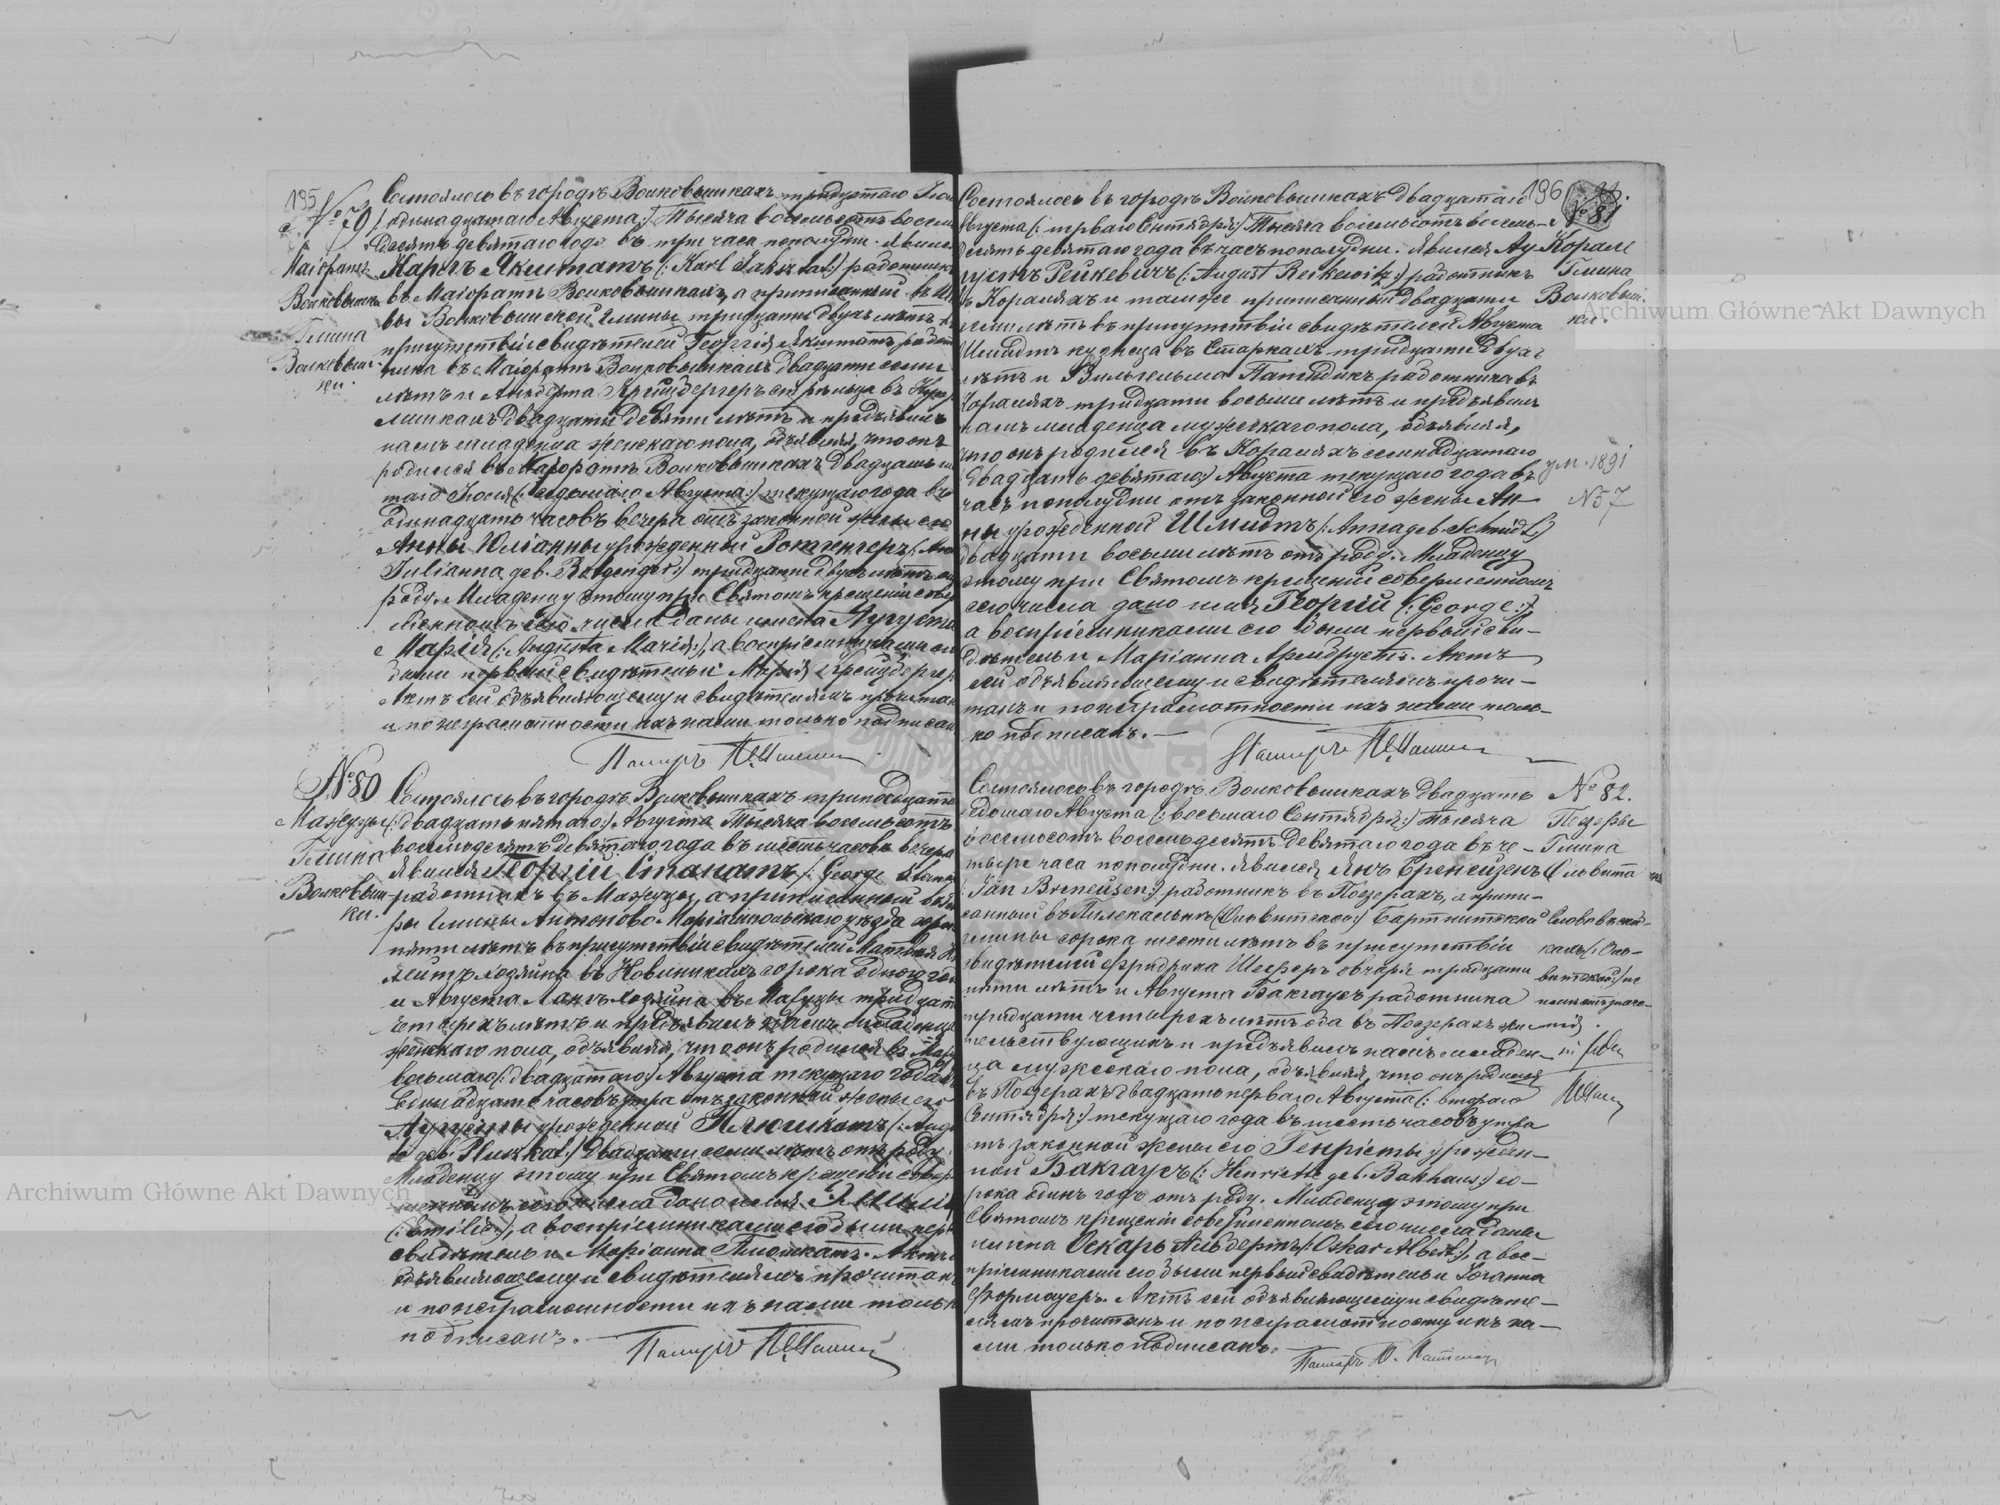 195
№ 79
Маіоратъ
Волковышки
Гмина
Волковыш-
ки.
Состоялось въ городѣ Волковышкахъ тридцатаго Іюля
одинадцатаго Августа:/ Тысяча восемьсотъ восемь
десятъ девятаго года въ три часа пополудни. Явился
Карлъ Якштатъ (: Karl Jakstat:) работникъ
въ Маіоратѣ Волковышкахъ, а приписанный въ
вы Волковышской Гмины тридцати двухъ лѣтъ въ
присутствіи свидѣтелей Георгія Якштатъ работ
ника въ Маіоратѣ Волковышкахъ двадцати семи
лѣтъ и Альберта Крейцбергеръ стрѣльца въ
двадцати девяти лѣтъ и предъявилъ
намъ младенца женскаго пола, объявляя, что онъ
родился въ Маіоратѣ Волковышкахъ двадцать
таго Іюля (: седьмаго Августа:) текущаго года въ
одинадцать часовъ вечера отъ законной жены его
Анны Юліанны урожденный
Julianna geb. тридцати двухъ лѣтъ отъ
роду. Младенцу этому при Святомъ крещеніи совер
шенномъ сего числа даны имена Августа
Марія (: Augusta Maria:), а воспріемниками его
были первый свидѣтель и Марія Крейцбергеръ
Актъ сей объявляющему и свидѣтелямъ прочитанъ
и по неграмотности ихъ нами только подписанъ
Пасторъ
№ 80
Мажуцы
Гмина
Волковыш-
ки.
Состоялось въ городѣ Волковышкахъ тринадцатаго
(: двадцать пятаго:) Августа Тысяча восемьсотъ
восемьдесятъ девятаго года въ шесть часовъ вечера
явился Георгій Станатъ (: George Stanat
работникъ въ Мажуцы, а приписанный въ
ры Гмины Антоново Маріампольскаго уѣзда сорока
пяти лѣтъ въ присутствіи свидѣтелей Матвея
хозяина въ Новиникахъ сорока одного года
и Августа хозяина въ Мажуцы тридцати
четырехъ лѣтъ и предъявилъ намъ младенца
женскаго пола, объявляя, что онъ родился въ
восьмаго (: двадцатаго:) Августа текущаго года въ
одинадцать часовъ утра отъ законной жены его
Августы урожденной Плюшкатъ (: Augus
te geb. Pluszkat:) двадцати семи лѣтъ отъ роду.
Младенцу этому при Святомъ крещеніи совер
шенномъ сего числа дано имя Эмилія
(: Emilie:), а воспріемниками его были первый
свидѣтель и Маріанна Плюшкатъ. Актъ
объявляющему и свидѣтелямъ прочитанъ
и по неграмотности ихъ нами только
подписанъ.
Пасторъ
196
№ 81
Корале
Гмина
Волковыш-
ки.
Состоялось въ городѣ Волковышкахъ двадцатаго
Августа (: перваго Сентября:) Тысяча восемьсотъ восемь-
десятъ девятаго года въ часъ пополудни. Явился Ау
густъ Рейкевичъ (: August Reikewitz:) работникъ
въ Кораляхъ и тамже приписанный двадцати
семи лѣтъ въ присутствіи свидѣтелей Августа
Шмидтъ кузнеца въ Старкахъ тридцати двухъ
лѣтъ и Вильгельма работника въ
Кораляхъ тридцати восьми лѣтъ и предъявилъ
намъ младенца мужескаго пола, объявляя,
что онъ родился въ Кораляхъ семнадцатаго
(двадцать девятаго) Августа текущаго года въ
часъ пополудни отъ законной его жены Ан
ны урожденной Шмидтъ (: Anna geb. Schmidt:)
двадцати восьми лѣтъ отъ роду. Младенцу
этому при Святомъ крещеніи совершенномъ
сего числа дано имя Георгій (: George:),
а воспріемниками его были первый сви-
дѣтель и Маріанна Армбрустъ. Актъ
сей объявляющему и свидѣтелямъ прочи-
танъ и по неграмотности ихъ нами толь-
ко подписанъ.
Пасторъ
ум. 1891
№ 57
№ 82.
Поезеры
Гмина
Ольвита
Слово въ
калъ (: Оль-
витской:) не
имѣетъ значе-
нія.
Состоялось въ городѣ Волковышкахъ двадцать
седьмаго Августа (: восьмаго Сентября:) тысяча
восемьсотъ восемьдесятъ девятаго года въ че-
тыре часа пополудни. Явился Янъ Бренейзенъ
(: Jan Breneisen:) работникъ въ Поезерахъ, а припи-
санный въ (: Ольвитской:) Бартнитской
гмины сорока шести лѣтъ въ присутствіи
свидѣтелей Фридриха Шеферъ овчаря тридцати
пяти лѣтъ и Августа Бакгаусъ работника
тридцати четырехъ лѣтъ оба въ Поезерахъ жи-
тельствующихъ и предъявилъ намъ младен-
ца мужескаго пола, объявляя, что онъ родился
въ Поезерахъ двадцать перваго Августа (: втораго
Сентября:) текущаго года въ шесть часовъ утра
отъ законной жены его Генріеты урожден-
ной Бакгаусъ (: Henriette geb. Bakhaus:) со-
рока одинъ годъ отъ роду. Младенцу этому при
Святомъ крещеніи совершенномъ сего числа даны
имена Оскаръ Альбертъ (: Oskar Albert:), а вос-
пріемниками его были первый свидѣтель и Іоганна
Актъ сей объявляющему и свидѣте-
лямъ прочитанъ и по неграмотности ихъ на-
ми только подписанъ.
Пасторъ
Archiwum Główne Akt Dawnych
Archiwum Główne Akt Dawnych